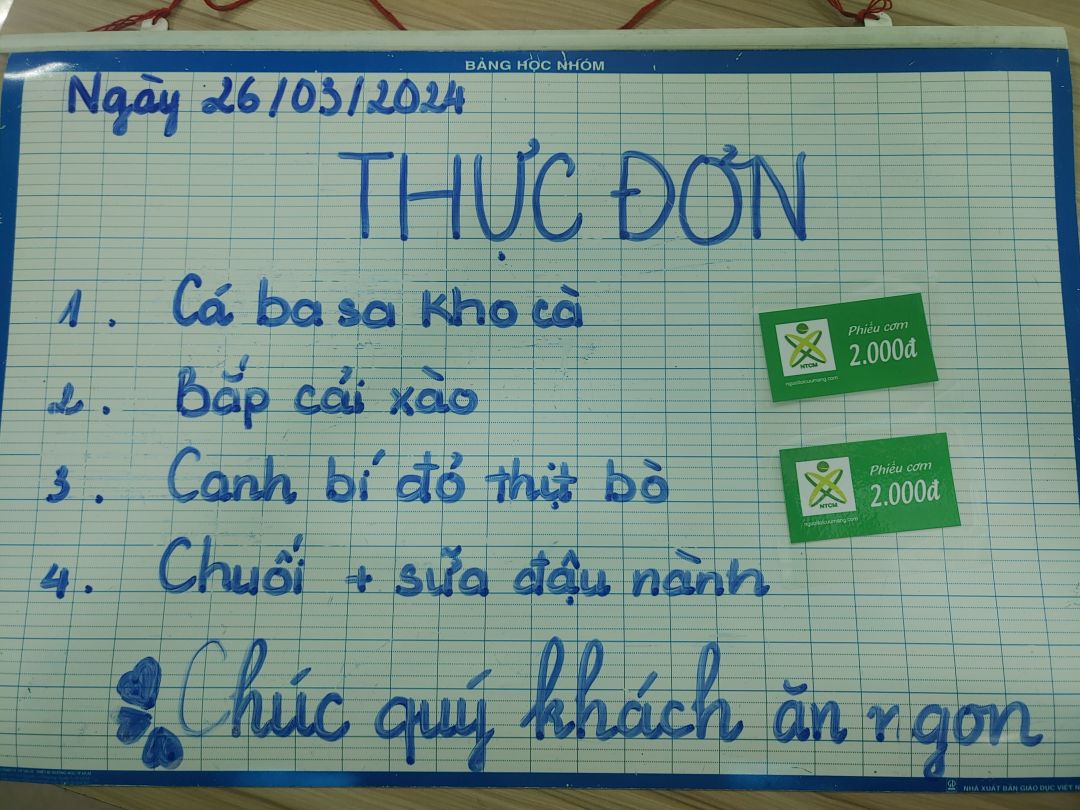 BẢNG HỌC NHÓM
Ngày 26/03/2024
THỰC ĐƠN
1. Cá ba sa kho cà
2. Bắp cải xào
3. Canh bí đỏ thịt bò
4. Chuối + sữa đậu nành
Phiếu cơm
2.000đ
NTCM
nguoitoicuumang.com
Phiếu cơm
2.000đ
NTCM
nguoitoicuumang.com
Chúc quý khách ăn ngon
NHÀ XUẤT BẢN GIÁO DỤC VIỆT N